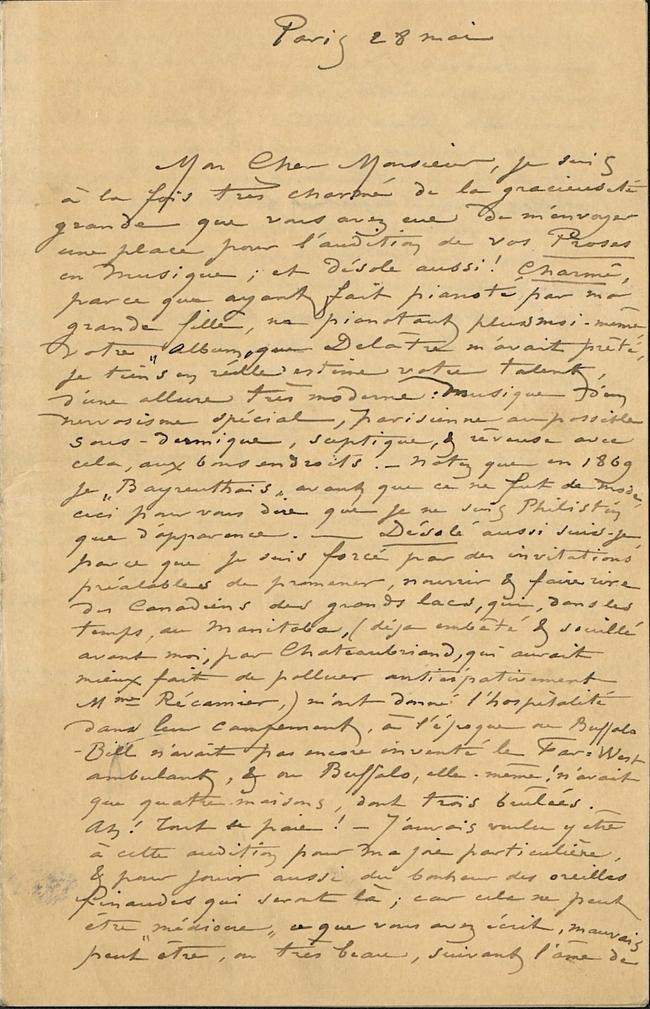 Paris 28 mai
Mon Cher Monsieur, je suis
à la fois très charmé de la gracieuseté
grande que vous avez eue de m'envoyer
une place pour l'audition de vos Proses
en Musique ; et désolé aussi ! Charmé,
parce que ayant fait pianoté par ma
grande fille, ne pianotant plus moi-même
votre "album" que Delatre m'avait prêté,
je tiens en réelle estime votre talent,
d'une allure très moderne : Musique d'un
nervosisme spécial, parisienne au possible
sous-dermique, sceptique, & rêveuse avec
cela, aux bons endroits. - Notez que en 1869
je "Bayreuthais" avant que ce ne fut de mode,
ceci pour vous dire que je ne suis Philistin
que d'apparence. — Désolé aussi suis-je
parce que je suis forcé par des invitations
préalables de promener, nourrir & faire rire
des Canadiens des grands lacs, qui, dans les
temps, au Manitoba, (déjà embêté & souillé
avant moi, par Chateaubriand, qui aurait
mieux fait de polluer anticipativement
Mme Récamier,) m'ont donné l'hospitalité
dans leur campement, à l'époque où Buffalo
-Bill n'avait pas encore inventé le Far-West
ambulant, & où Buffalo, elle-même ! n'avait
que quatre maisons, dont trois brûlées.
Ah ! Tout se paie ! - J'aurais voulu y être
à cette audition pour ma joie particulière,
& pour jouir aussi du bonheur des oreilles
finaudes qui seront là ; car cela ne peut
être "médiocre" ce que vous avez écrit, mauvais
peut être, ou très beau, suivant l'âme de